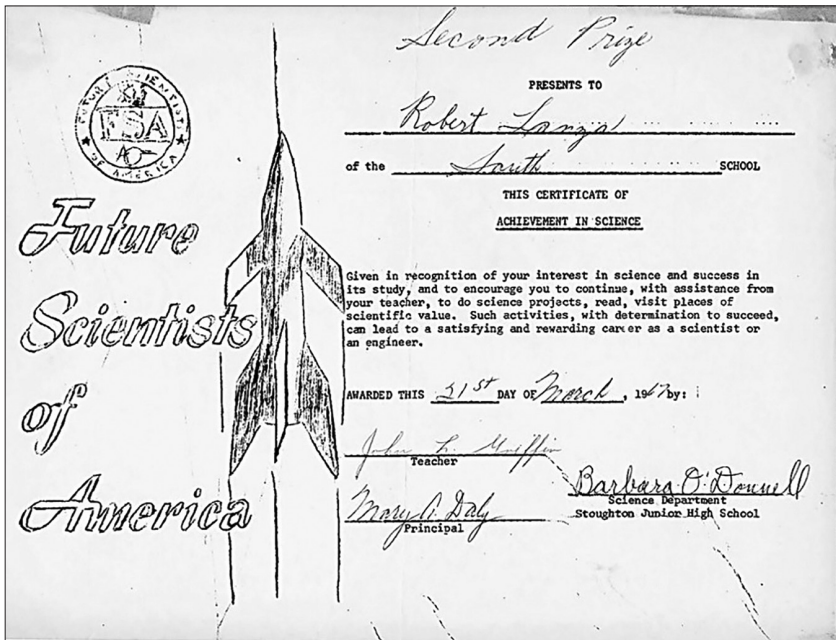 Second Prize
FUTURE SCIENTISTS
FSA
OF AMERICA
Future
Scientists
of
America
PRESENTS TO
Robert Lanza
of the South SCHOOL
THIS CERTIFICATE OF
ACHIEVEMENT IN SCIENCE
Given in recognition of your interest in science and success in
its study, and to encourage you to continue, with assistance from
your teacher, to do science projects, read, visit places of
scientific value. Such activities, with determination to succeed,
can lead to a satisfying and rewarding career as a scientist or
an engineer.
AWARDED THIS 21st DAY OF March, 1967 by:
John L. Griffin
Teacher
Barbara O'Donnell
Science Department
Stoughton Junior High School
Mary A. Daly
Principal